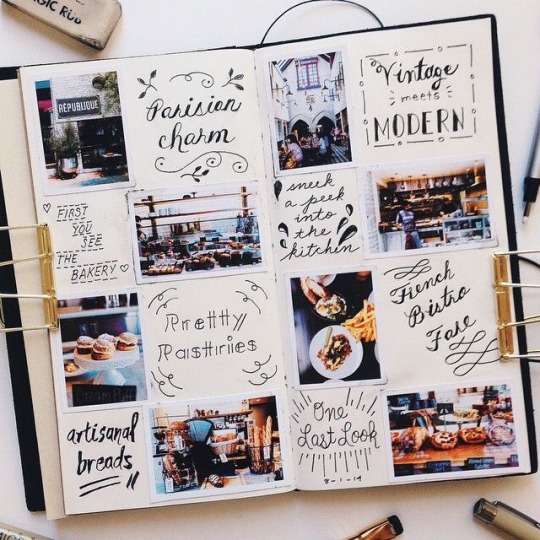 MAGIC RUB
RÉPUBLIQUE
Parisian
charm
FIRST
YOU
SEE
THE
BAKERY
Pretty
Pastries
artisanal
breads
Vintage
meets
MODERN
sneek
a peek
into
the
kitchen
French
Bistro
Fare
One
Last Look
8-1-14